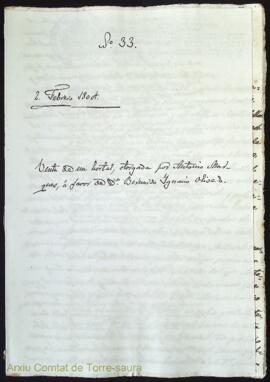 Nº 33.
2. Febrero 1804.
Venta de un hortal, otorgada por Antonio
à favor de Dn. Bernardo Ygnacio Olives.
Arxiu Comtat de Torre-saura